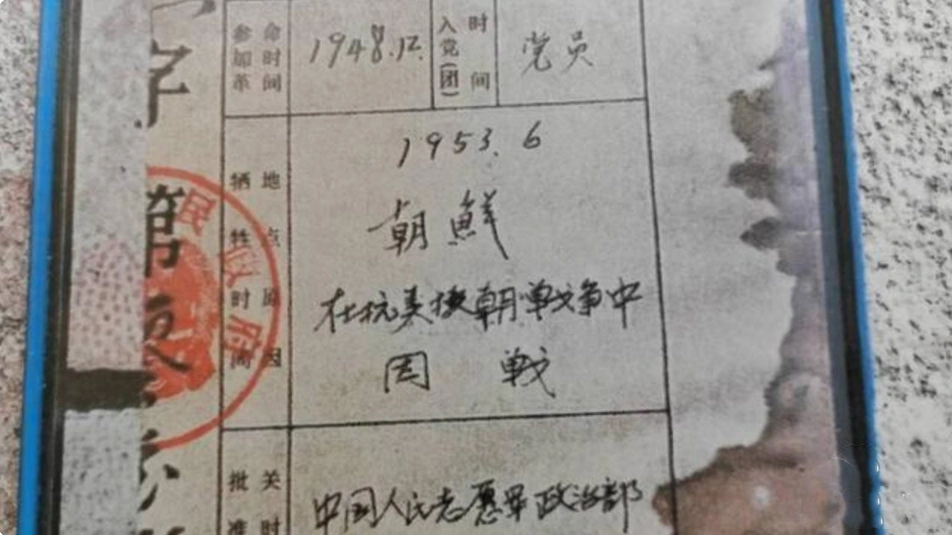 字第
参加革命时间
1948.12.
入党(团)时间
党员
牺牲时间地点原因
1953.6
朝鲜
在抗美援朝战争中
因 战
批准
关
时
中国人民志愿军政治部
民政府